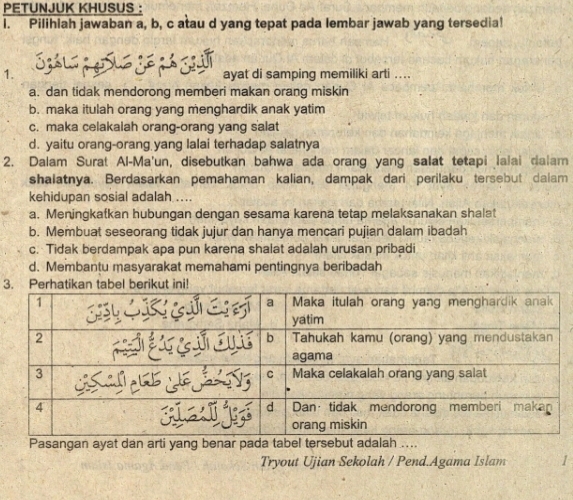 PETUNJUK KHUSUS :
I. Pilihlah jawaban a, b, c atau d yang tepat pada lembar jawab yang tersedia!
1. الَّذِيْنَ هُمْ عَنْ صَلَاتِهِمْ سَاهُوْنَ ayat di samping memiliki arti ....
a. dan tidak mendorong memberi makan orang miskin
b. maka itulah orang yang menghardik anak yatim
c. maka celakalah orang-orang yang salat
d. yaitu orang-orang yang lalai terhadap salatnya
2. Dalam Surat Al-Ma'un, disebutkan bahwa ada orang yang salat tetapi lalai dalam
shalatnya. Berdasarkan pemahaman kalian, dampak dari perilaku tersebut dalam
kehidupan sosial adalah ....
a. Meningkatkan hubungan dengan sesama karena tetap melaksanakan shalat
b. Membuat seseorang tidak jujur dan hanya mencari pujian dalam ibadah
c. Tidak berdampak apa pun karena shalat adalah urusan pribadi
d. Membantu masyarakat memahami pentingnya beribadah
3. Perhatikan tabel berikut ini!
1 اَرَءَيْتَ الَّذِيْ يُكَذِّبُ بِالدِّيْنَ a Maka itulah orang yang menghardik anak
yatim
2 فَذٰلِكَ الَّذِيْ يَدُعُّ الْيَتِيْمَ b Tahukah kamu (orang) yang mendustakan
agama
3 وَلَا يَحُضُّ عَلٰى طَعَامِ الْمِسْكِيْنِ c Maka celakalah orang yang salat
4 فَوَيْلٌ لِّلْمُصَلِّيْنَ d Dan tidak mendorong memberi makan
orang miskin
Pasangan ayat dan arti yang benar pada tabel tersebut adalah ....
Tryout Ujian Sekolah / Pend.Agama Islam 1